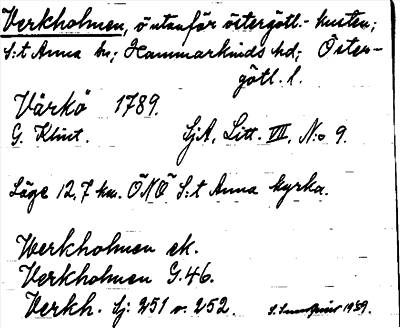 Verkholmen, ö utanför östergötl.-kusten;
S:t Anna sn; Hammarkinds hd; Öster-
götl. l.
Värkö 1789.
G. Klint. SjA, Litt. VIII, No 9.
Läge 12,7 km. ÖNÖ S:t Anna kyrka.
Verkholmen ek.
Verkholmen G.46.
Verkh. Sj 251 o. 252. 1939.